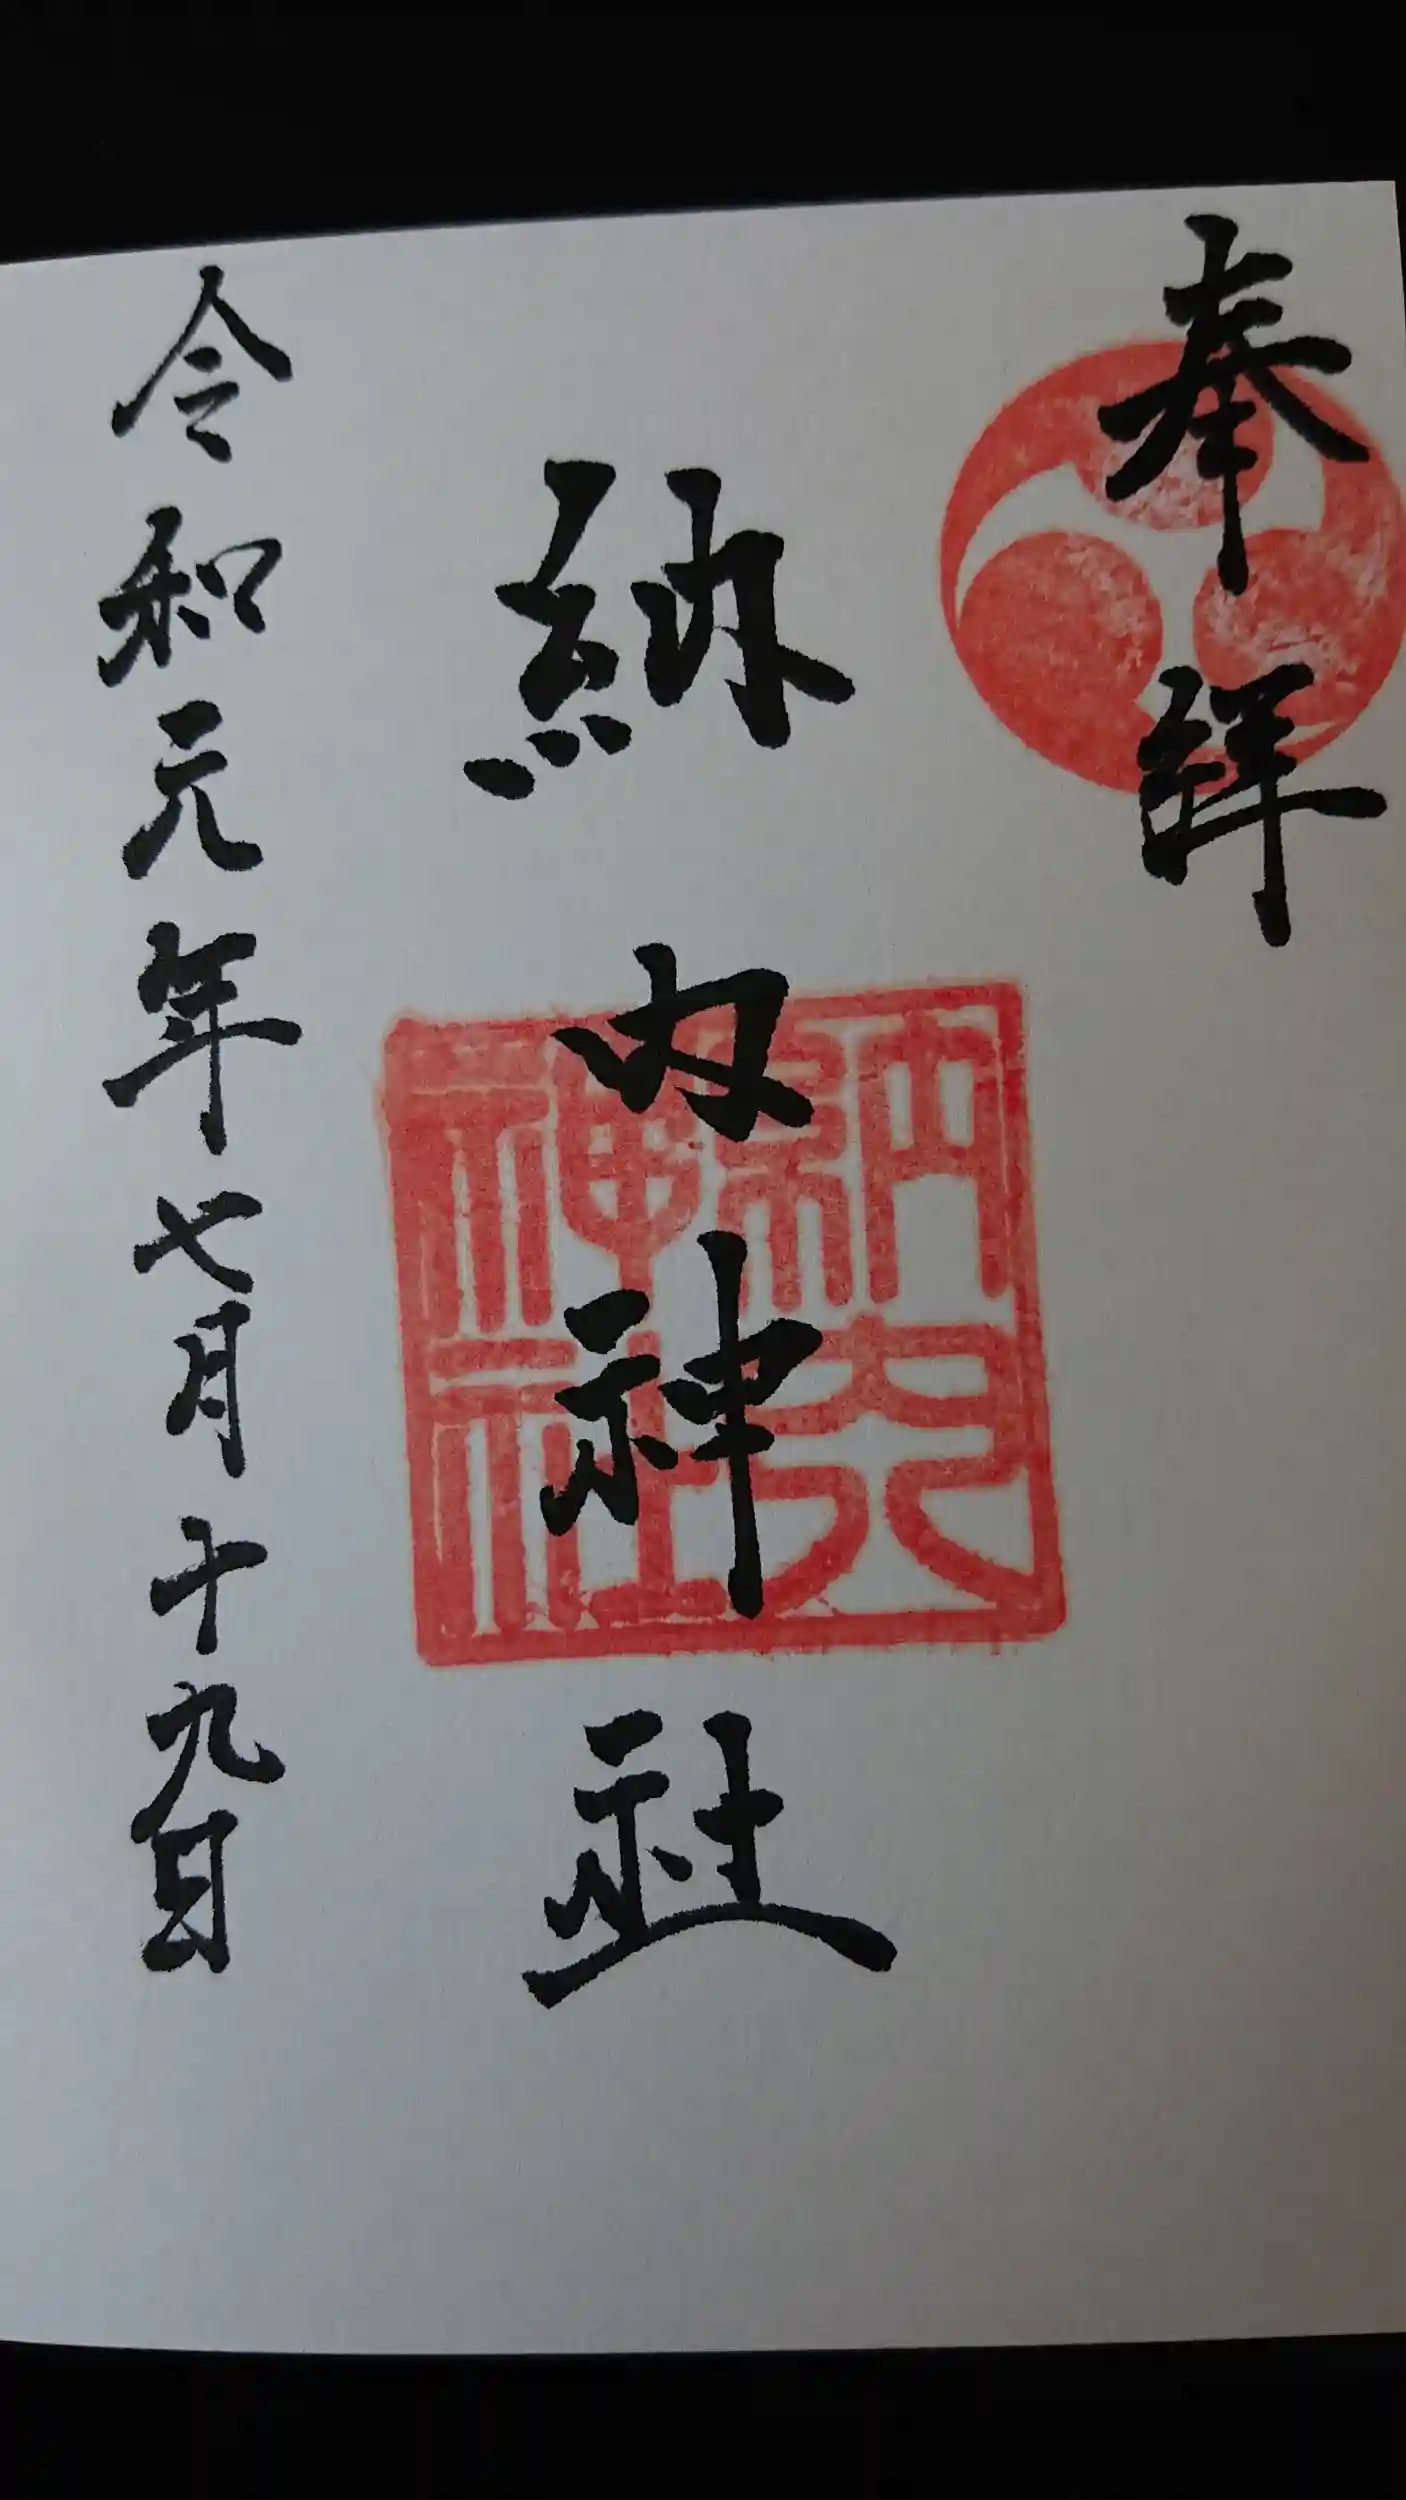 奉拝
納内神社
納
神社
令和元年七月十九日